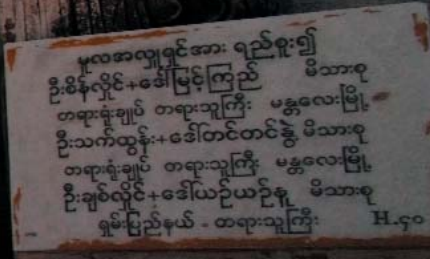 မူလအလှူရှင်အား ရည်စူး၍
ဦးစိန်လှိုင်+ဒေါ်မြင့်ကြည် မိသားစု
တရားရုံးချုပ် တရားသူကြီး မန္တလေးမြို့
ဦးသက်ထွန်း+ဒေါ်တင်တင်နွဲ့ မိသားစု
တရားရုံးချုပ် တရားသူကြီး မန္တလေးမြို့
ဦးချစ်လှိုင်+ဒေါ်ယဉ်ယဉ်နု မိသားစု
ရှမ်းပြည်နယ် - တရားသူကြီး H.၄၀